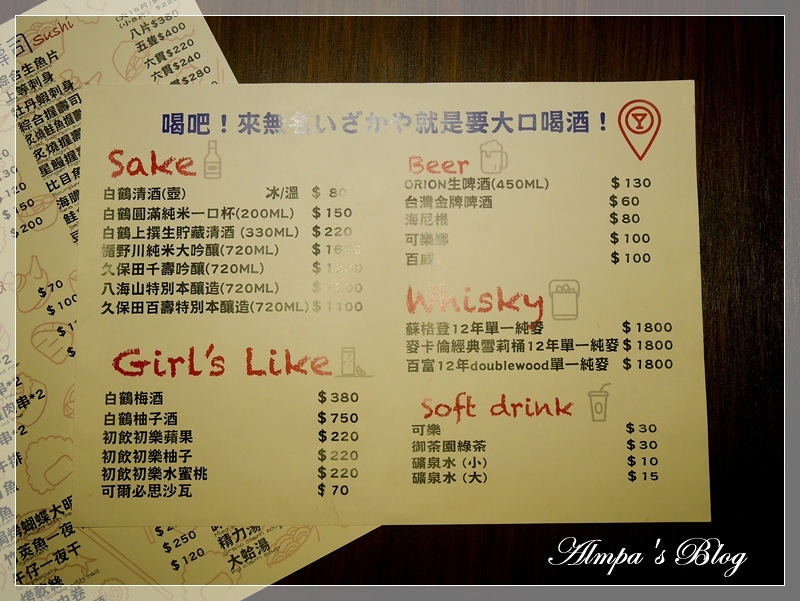 Sushi
八片$380
五隻$400
六貫$220
六貫$240
$280
綜合生魚片
上等刺身
牡丹蝦刺身
綜合握壽司
炙燒鮭魚握壽
比目魚
海膽
$130
$120
$150
$200
$70
$100
串*2
肉串*2
串*2
喝吧！來無名いざかや就是要大口喝酒！
Sake
白鶴清酒(壺) 冰/溫 $ 80
白鶴圓滿純米一口杯(200ML) $150
白鶴上撰生貯藏清酒 (330ML) $220
楯野川純米大吟釀(720ML)
久保田千壽吟釀(720ML)
八海山特別本釀造(720ML)
久保田百壽特別本釀造(720ML) $1100
Girl's Like
白鶴梅酒 $380
白鶴柚子酒 $750
初飲初樂蘋果 $220
初飲初樂柚子 $220
初飲初樂水蜜桃 $220
可爾必思沙瓦 $ 70
Beer
ORION生啤酒(450ML) $130
台灣金牌啤酒 $60
海尼根 $80
可樂娜 $100
百威 $100
Whisky
蘇格登12年單一純麥 $1800
麥卡倫經典雪莉桶12年單一純麥 $1800
百富12年doublewood單一純麥 $1800
Soft drink
可樂 $30
御茶園綠茶 $30
礦泉水 (小) $10
礦泉水 (大) $15
蝴蝶大明
魚一夜
午仔一夜干
$250
$120
精力湯
大蛤湯
Almpa's Blog